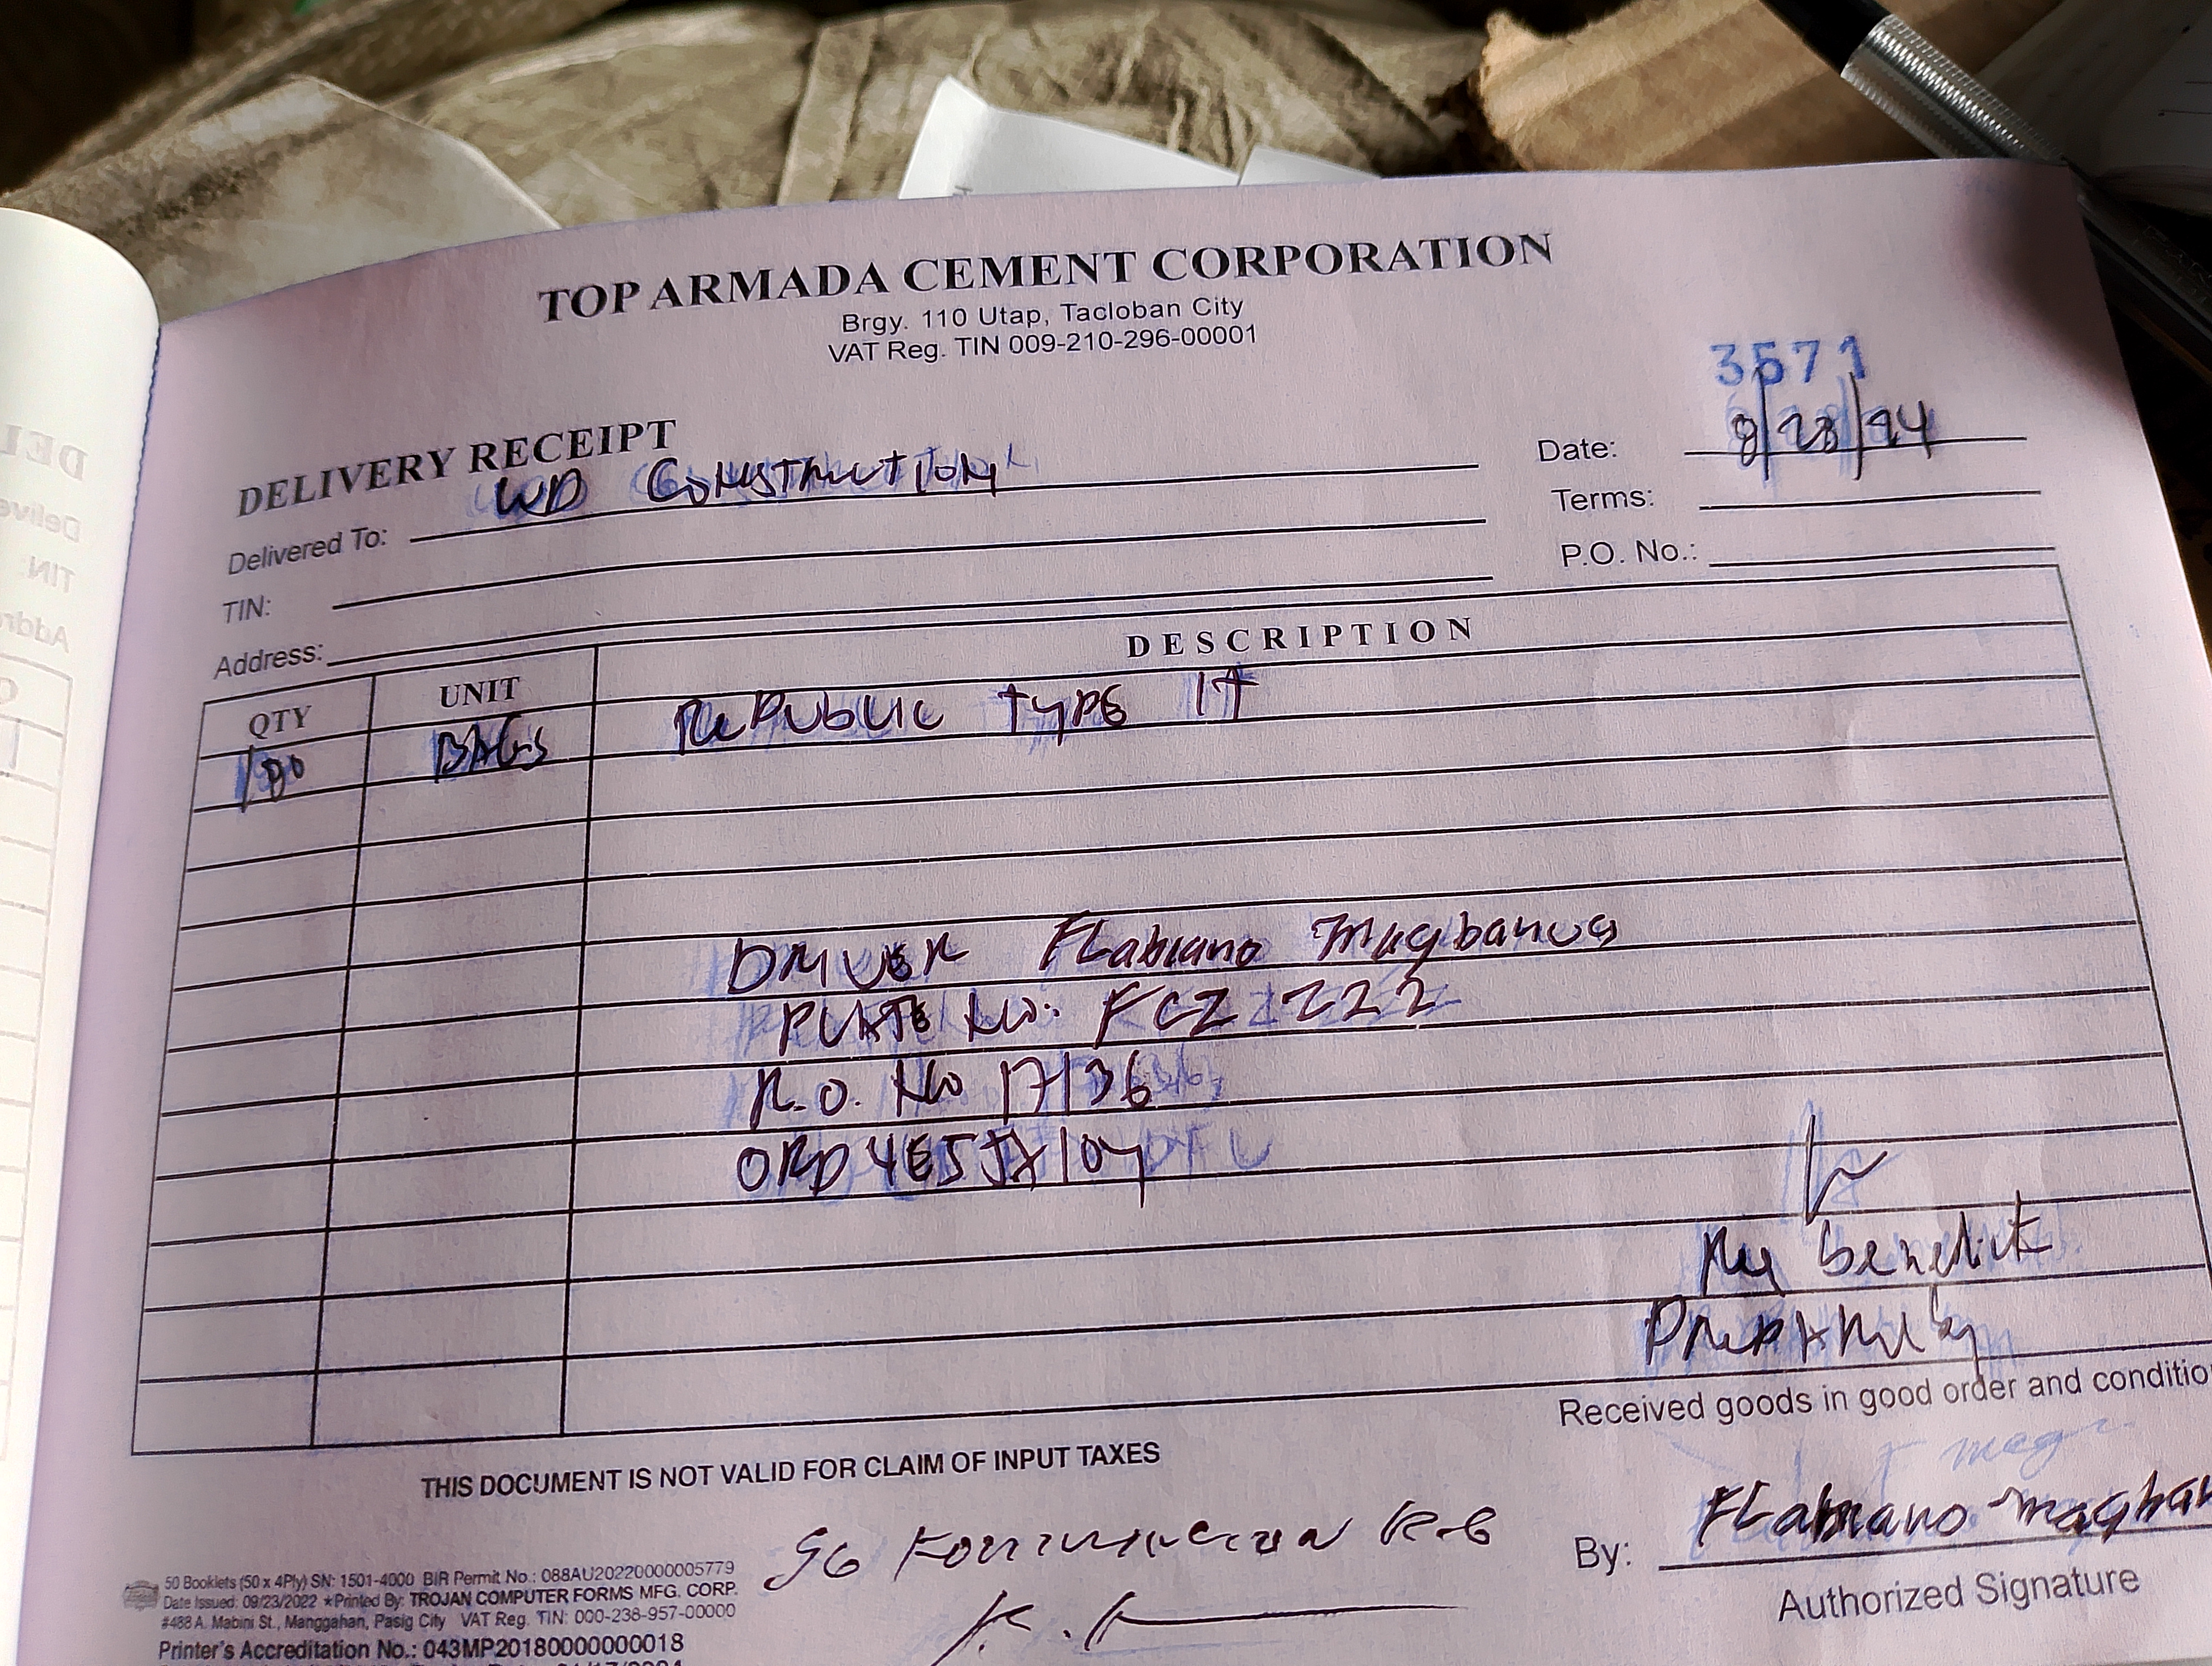 TOP ARMADA CEMENT CORPORATION
Brgy. 110 Utap, Tacloban City
VAT Reg. TIN 009-210-296-00001
3571
DELIVERY RECEIPT
Date: 8/28/24
Delivered To: WD Construction
Terms:
TIN:
P.O. No.:
Address:
QTY UNIT DESCRIPTION
BAGS Republic Type 1T
DRIVER FLabiano Magbanua
PLATE No: FCZ 222
R.O. No 17136
ORD
Benedict
Prepared by
Received goods in good order and conditio
THIS DOCUMENT IS NOT VALID FOR CLAIM OF INPUT TAXES
By: FLabiano Magban
Authorized Signature
50 Booklets (50 x 4Ply) SN: 1501-4000 BIR Permit No.: 088AU20220000005779
Date Issued: 09/23/2022 ★Printed By: TROJAN COMPUTER FORMS MFG. CORP.
#488 A. Mabini St., Manggahan, Pasig City VAT Reg. TIN: 000-238-957-00000
Printer's Accreditation No.: 043MP20180000000018